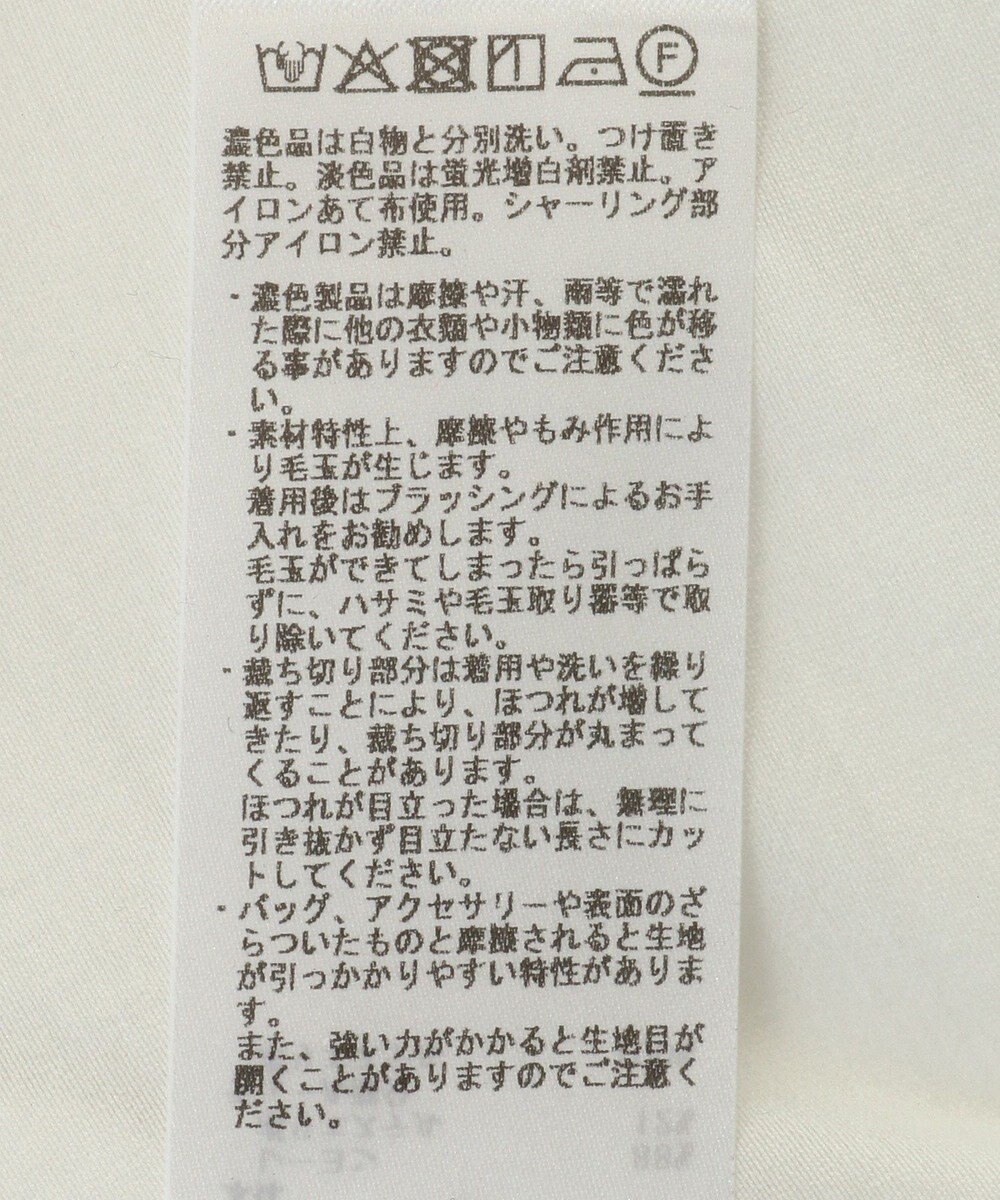 F
濃色品は白物と分別洗い。つけ置き
禁止。淡色品は蛍光増白剤禁止。ア
イロンあて布使用。シャーリング部
分アイロン禁止。
・濃色製品は摩擦や汗、雨等で濡れ
た際に他の衣類や小物類に色が移
る事がありますのでご注意くださ
い。
・素材特性上、摩擦やもみ作用によ
り毛玉が生じます。
着用後はブラッシングによるお手
入れをお勧めします。
毛玉ができてしまったら引っぱら
ずに、ハサミや毛玉取り器等で取
り除いてください。
・裁ち切り部分は着用や洗いを繰り
返すことにより、ほつれが増して
きたり、裁ち切り部分が丸まって
くることがあります。
ほつれが目立った場合は、無理に
引き抜かず目立たない長さにカッ
トしてください。
・バッグ、アクセサリーや表面のざ
らついたものと摩擦されると生地
が引っかかりやすい特性がありま
す。
また、強い力がかかると生地目が
開くことがありますのでご注意く
ださい。